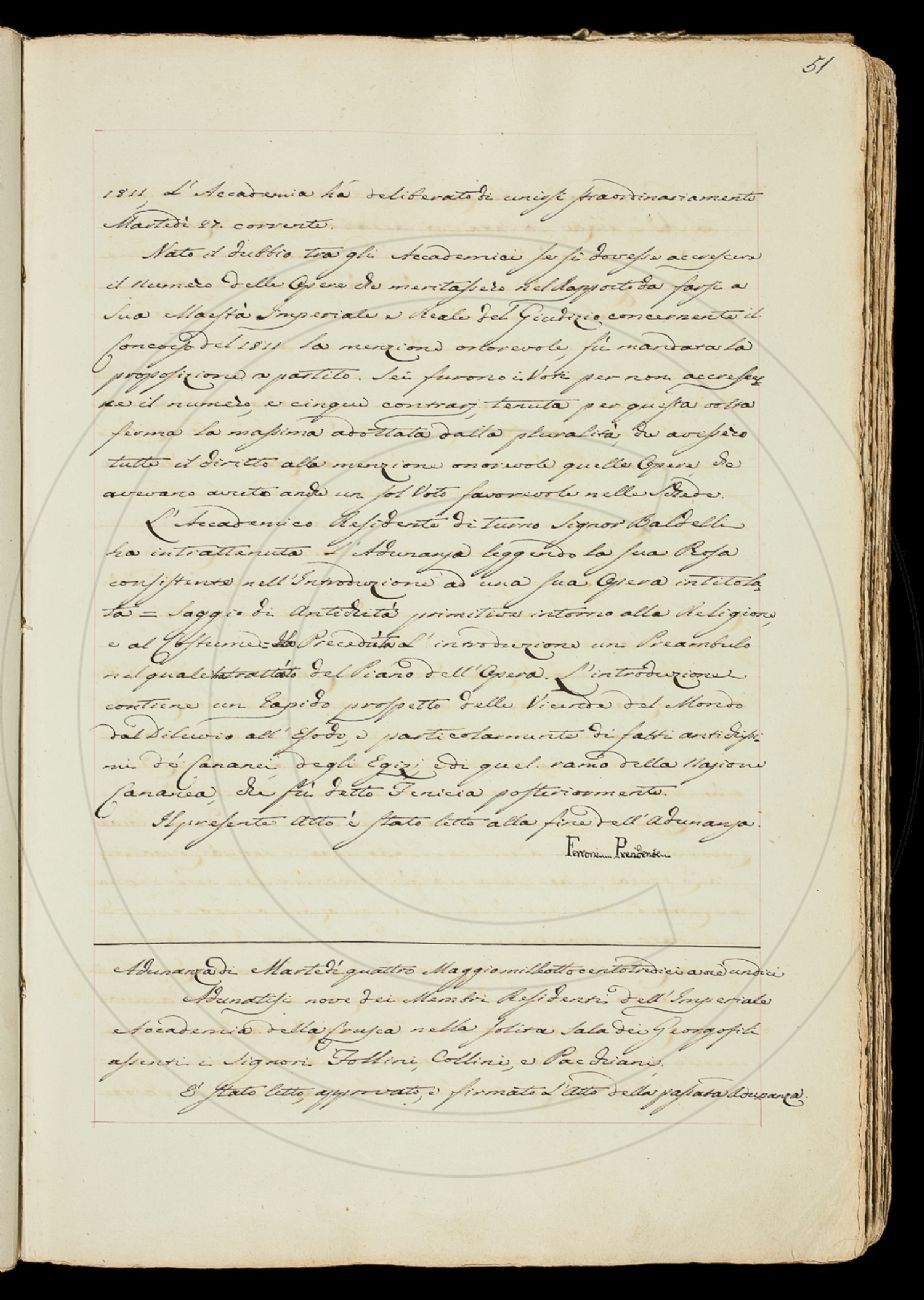 51
1811, L'Accademia há deliberato di unirsi straordinariamente
Martedì 27. corrente.
Nato il dubbio tra gli Accademici se si dovesse accrescere
il numero delle Opere che meritassero nel Rapporto da farsi a
Sua Maestà Imperiale e Reale del Giudizio concernente il
Concorso del 1811 la menzione onorevole, fù mandata la
proposizione a partito. Sei furono i Voti per non accresce-
re il numero, e cinque contrarj, tenuta per questa volta
ferma la massima adottata dalla pluralità, che avessero
tutte il diritto alla menzione onorevole quelle Opere che
avevano avuto anche un sol Voto favorevole nelle Schede.
L'Accademico Residente di turno Signor Baldelli
ha intrattenuta l'Adunanza leggendo la sua Prosa
consistente nell'Introduzione ad una sua Opera intitola-
ta = Saggio di Antichità primitive intorno alla Religione,
e al Costume = Precedeva L'introduzione un Preambulo
nel quale trattato del Piano dell'Opera. L'introduzione
contiene un rapido prospetto delle Vicende del Mondo
dal Diluvio all'Esodo, e particolarmente di fatti antichissi-
mi de' Cananei, degli Egizj e di quel ramo della Nazione
Cananea, che fù detto Fenicia posteriormente.
Il presente Atto è stato letto alla fine dell'Adunanza.
Ferroni Presidente
Adunanza di Martedì quattro Maggio milleottocentotredici a ore undici
Adunatisi nove dei Membri Residenti dell'Imperiale
Accademia della Crusca nella solita Sala dei Georgofili
assenti i Signori Follini, Collini, e Pacchiani.
È stato letto, approvato, e firmato l'Atto della passata Adunanza.